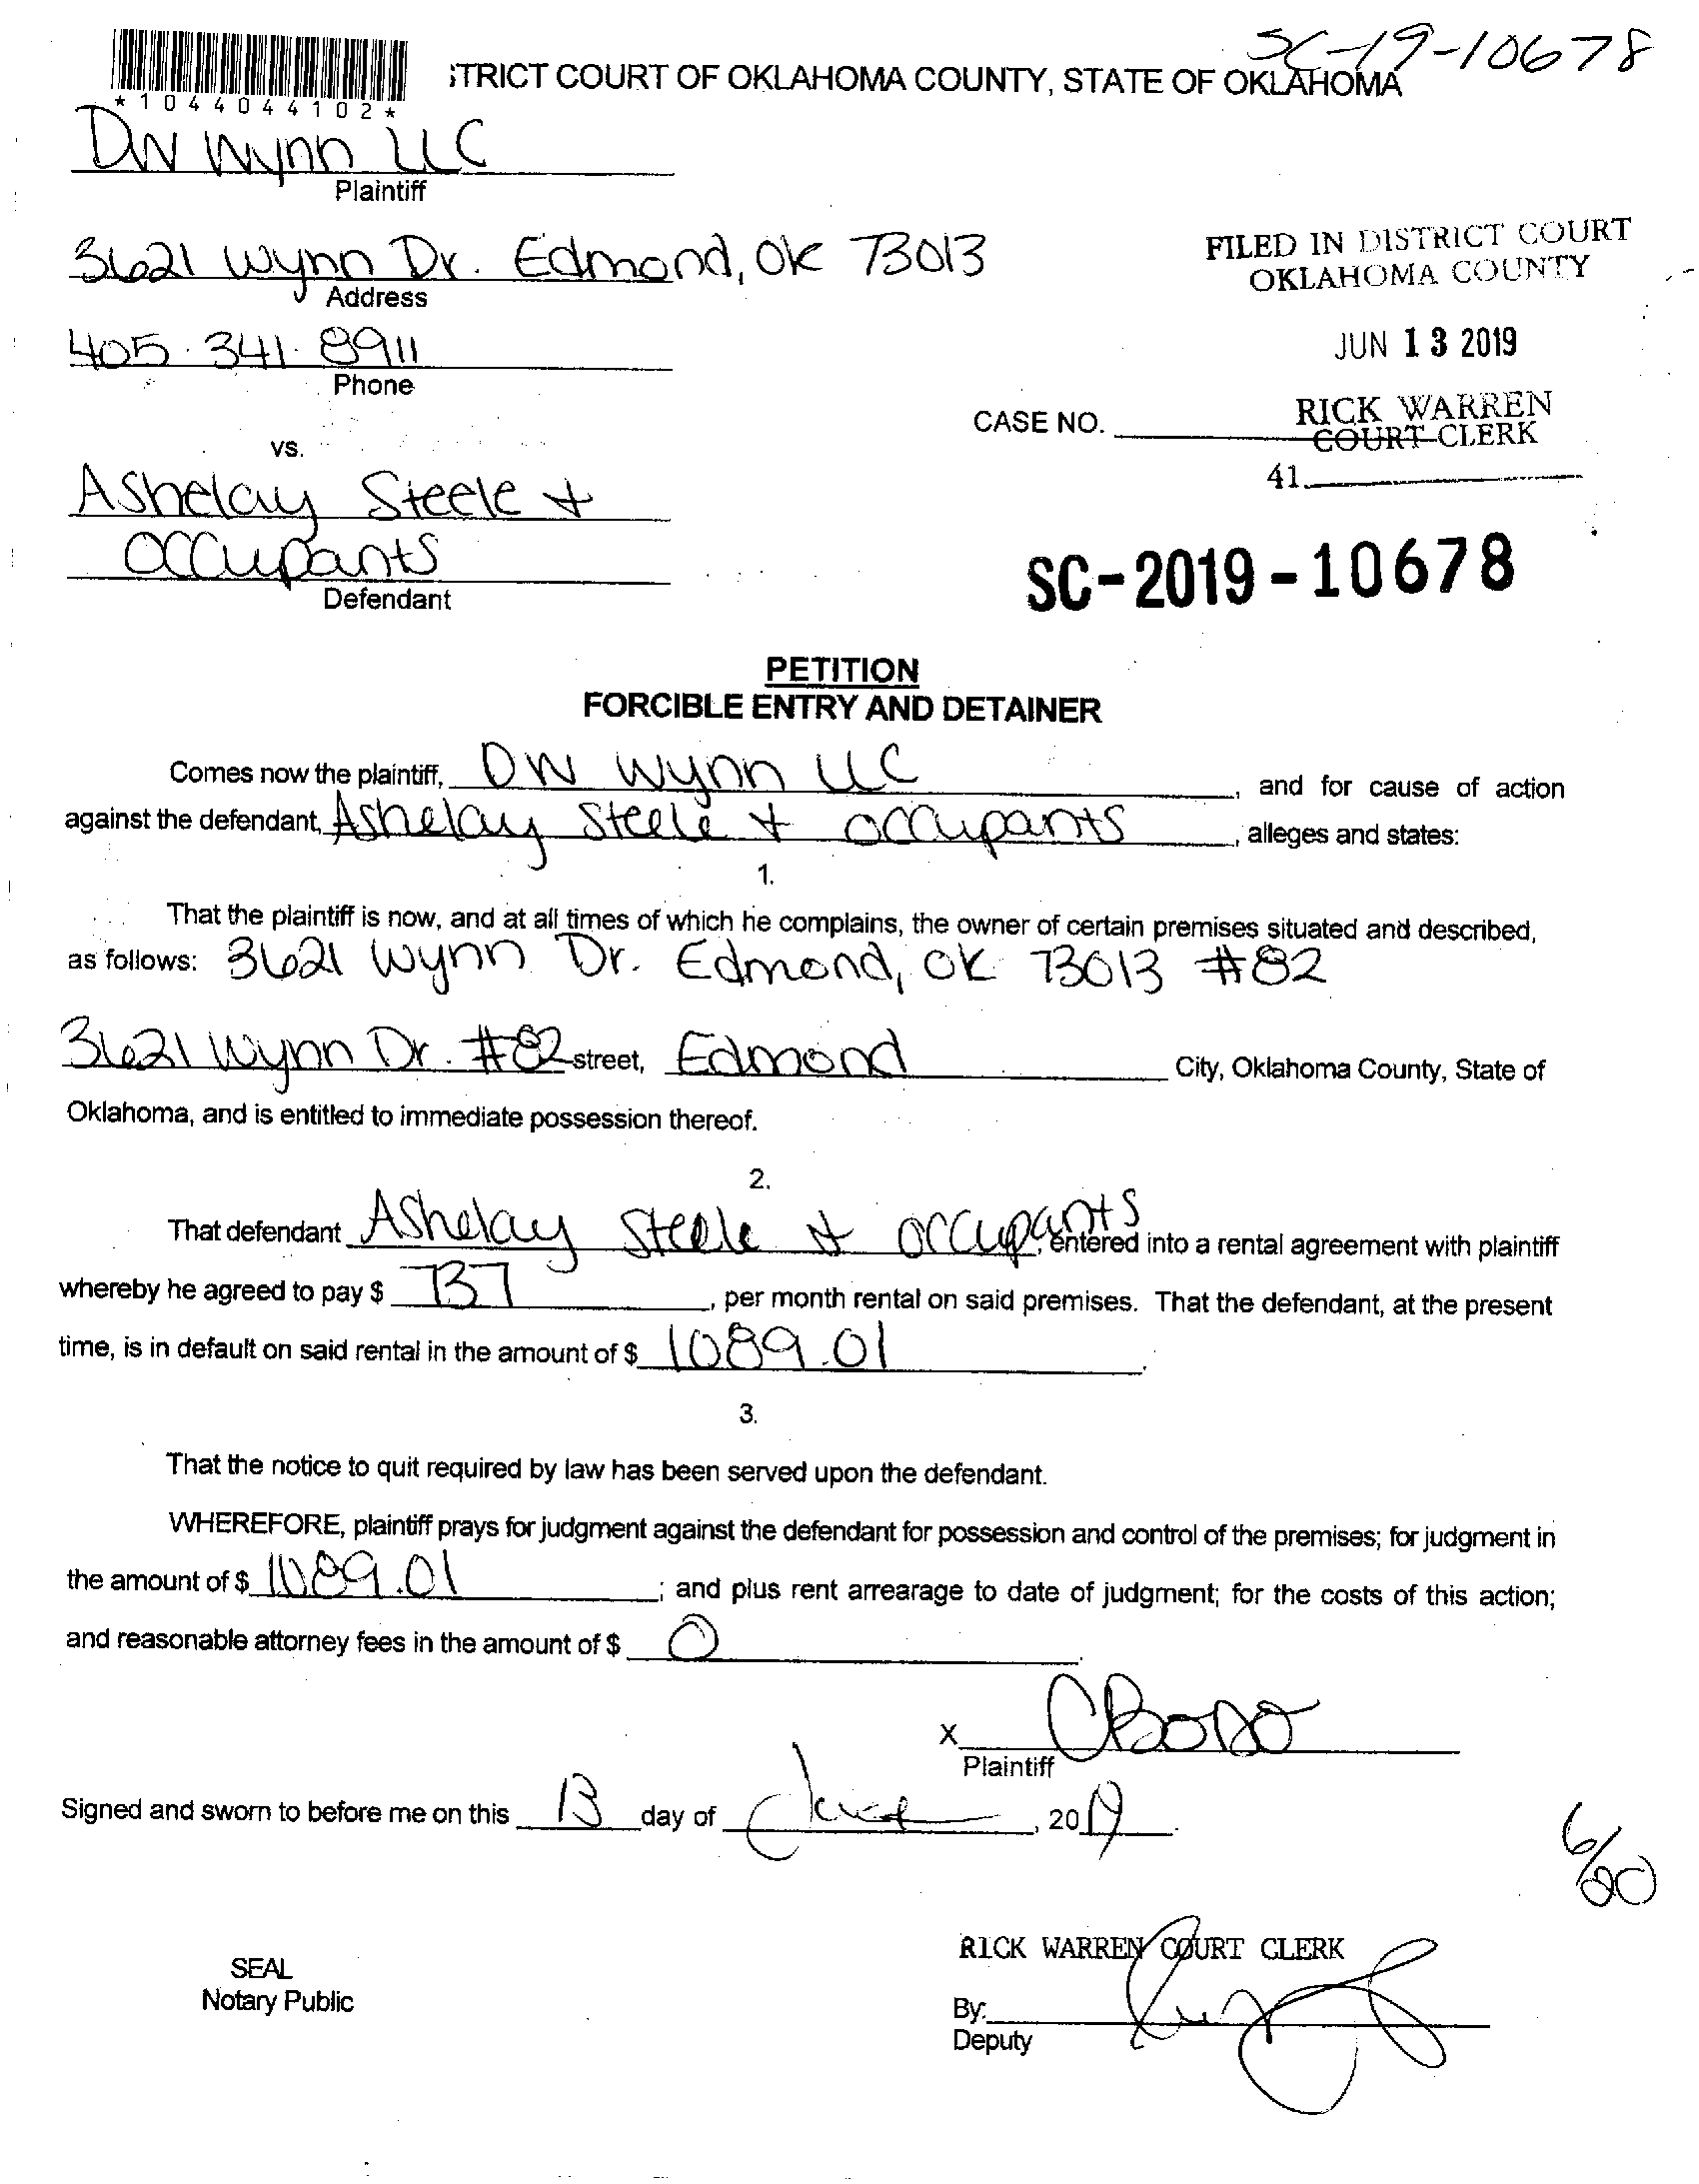 SC-19-10678
*1044044102*
STRICT COURT OF OKLAHOMA COUNTY, STATE OF OKLAHOMA
DW Wynn LLC
Plaintiff
3621 Wynn Dr. Edmond, OK 73013
Address
FILED IN DISTRICT COURT
OKLAHOMA COUNTY
405.341.8911
Phone
JUN 13 2019
CASE NO.
RICK WARREN
COURT CLERK
vs.
41
Ashelay Steele +
occupants
Defendant
SC-2019-10678
PETITION
FORCIBLE ENTRY AND DETAINER
Comes now the plaintiff, DW Wynn LLC, and for cause of action
against the defendant, Ashelay Steele + occupants, alleges and states:
1.
That the plaintiff is now, and at all times of which he complains, the owner of certain premises situated and described,
as follows: 3621 Wynn Dr. Edmond, OK 73013 #82
3621 Wynn Dr. #82 street, Edmond City, Oklahoma County, State of
Oklahoma, and is entitled to immediate possession thereof.
2.
That defendant Ashelay Steele + occupants, entered into a rental agreement with plaintiff
whereby he agreed to pay $ 737, per month rental on said premises. That the defendant, at the present
time, is in default on said rental in the amount of $ 1089.01.
3.
That the notice to quit required by law has been served upon the defendant.
WHEREFORE, plaintiff prays for judgment against the defendant for possession and control of the premises; for judgment in
the amount of $ 1089.01; and plus rent arrearage to date of judgment; for the costs of this action;
and reasonable attorney fees in the amount of $ 0.
X
Plaintiff
Signed and sworn to before me on this 13 day of June, 2019.
6/20
RICK WARREN COURT CLERK
SEAL
Notary Public
By:
Deputy